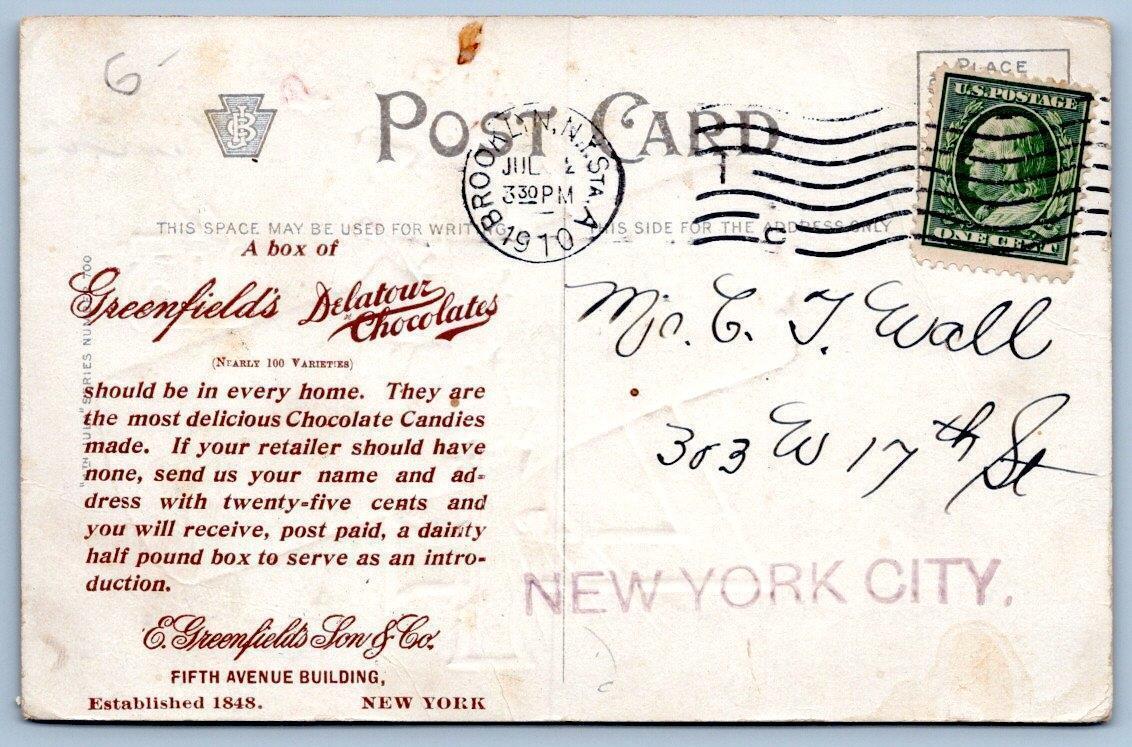 6-
JSB
POST CARD
PLACE
U.S. POSTAGE
ONE CENT
BROOKLYN, N.Y. STA. A
JUL 2
3 30 PM
1910
T
C
THIS SPACE MAY BE USED FOR WRITING
THIS SIDE FOR THE ADDRESS ONLY
A box of
Greenfield's Delatour Chocolates
(NEARLY 100 VARIETIES)
should be in every home. They are
the most delicious Chocolate Candies
made. If your retailer should have
none, send us your name and ad-
dress with twenty-five cents and
you will receive, post paid, a dainty
half pound box to serve as an intro-
duction.
E. Greenfield's Son & Co.
FIFTH AVENUE BUILDING,
Established 1848. NEW YORK
SERIES NUMBER 700
Mr. C. T. Wall
303 W 17th St
NEW YORK CITY.